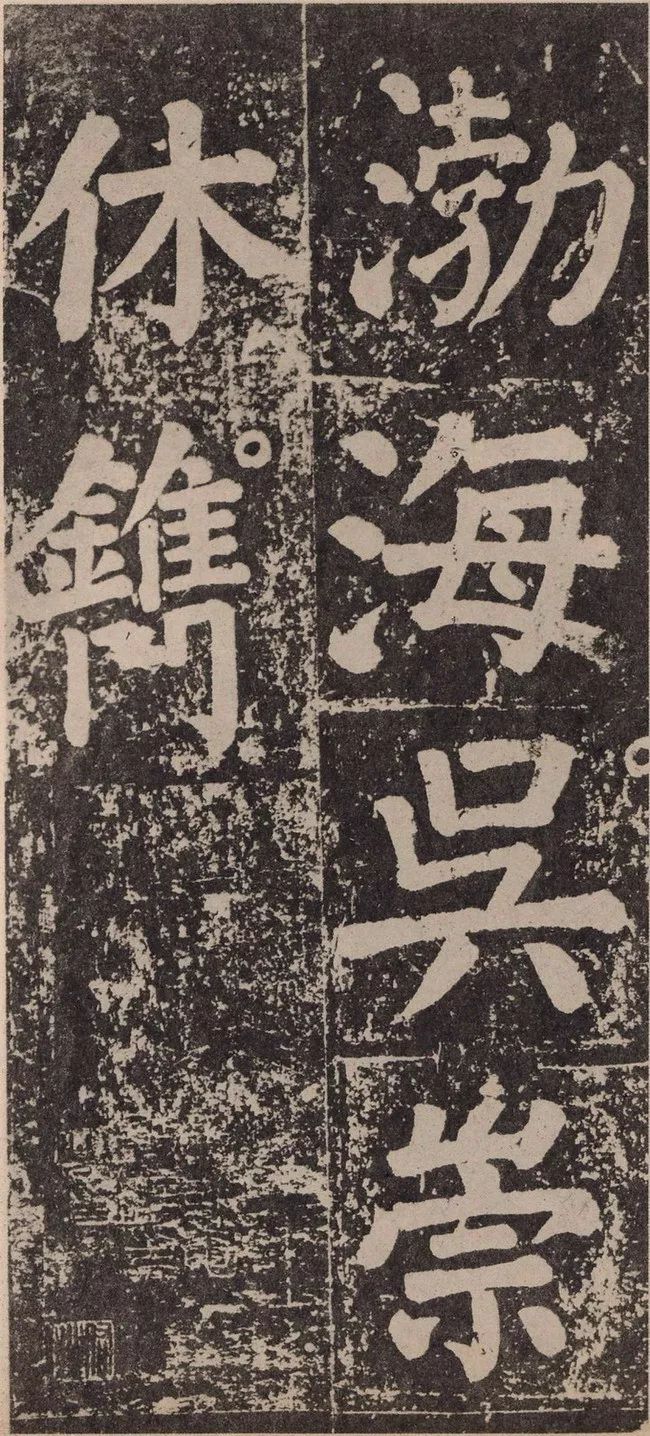 渤海吳崇
休鐫